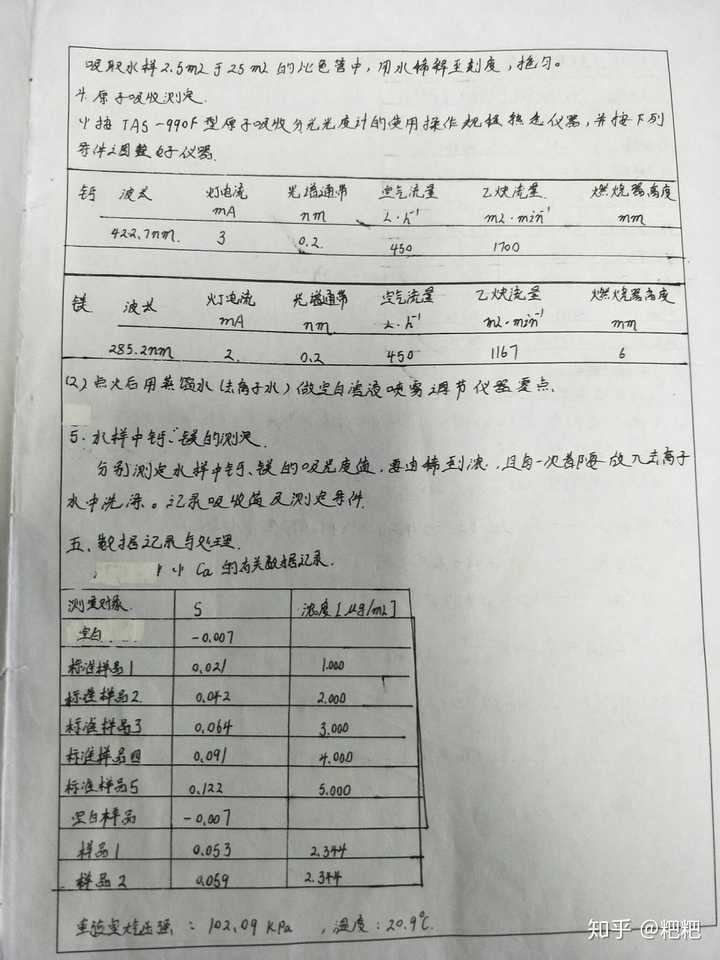 吸取水样2.5mL于25mL的比色管中,用水稀释至刻度,摇匀。
4.原子吸收测定.
(1)按TAS-990F型原子吸收分光光度计的使用操作规程 仪器,并按下列
条件之 仪器.
钙 波长 灯电流 光谱通带 空气流量 乙炔流量 燃烧器高度
mA nm L·h⁻¹ mL·min⁻¹ mm
422.7nm. 3 0.2 450 1700
镁 波长 灯电流 光谱通带 空气流量 乙炔流量 燃烧器高度
mA nm L·h⁻¹ mL·min⁻¹ mm
285.2nm 2. 0.2 450 1167 6
(2)点火后用蒸馏水(去离子水)做空白溶液喷雾调节仪器零点.
5.水样中钙、镁的测定.
分别测定水样中钙、镁的吸光度值,要由稀到浓,且每一次都要放入去离子
水中洗涤。记录吸收值及测定条件.
五、数据记录与处理.
(1) Ca的有关数据记录.
测定对象. S 浓度[μg/mL]
空白 -0.007
标准样品1 0.021 1.000
标准样品2 0.042 2.000
标准样品3 0.064 3.000
标准样品四 0.091 4.000
标准样品5 0.122 5.000
空白样品 -0.007
样品1 0.053 2.344
样品2 0.059 2.344
:102.09 KPa ,温度:20.9℃.
知乎 @粑粑